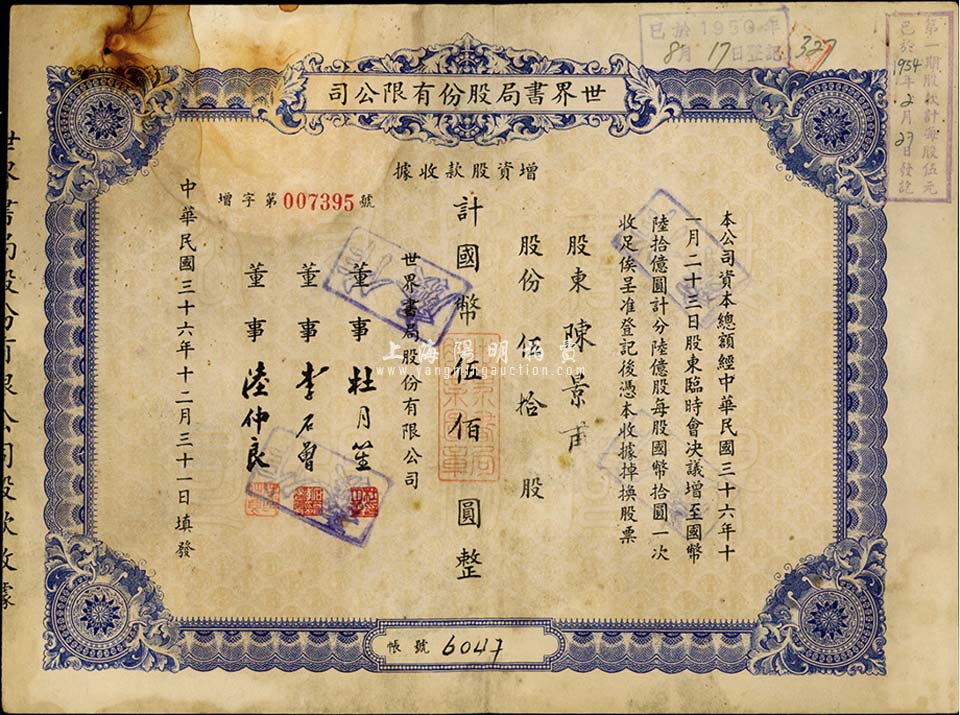 世界書局股份有限公司
已於1950年
8月17日登記
327
第一期股款計每股伍元
已於1954年2月27日發訖
增資股款收據
增字第007395號
本公司資本總額經中華民國三十六年十
一月二十三日股東臨時會決議增至國幣
陸拾億圓計分陸億股每股國幣拾圓一次
收足俟呈准登記後憑本收據掉換股票
股東 陳景甫
股份 伍拾 股
計國幣伍佰圓整
世界書局股份有限公司
董事 杜月笙
董事 李石曾
董事 陸仲良
中華民國三十六年十二月三十一日填發
帳號 6047
世界書局股份有限公司股款收據
上海陽明拍賣
www.yangmingauction.com